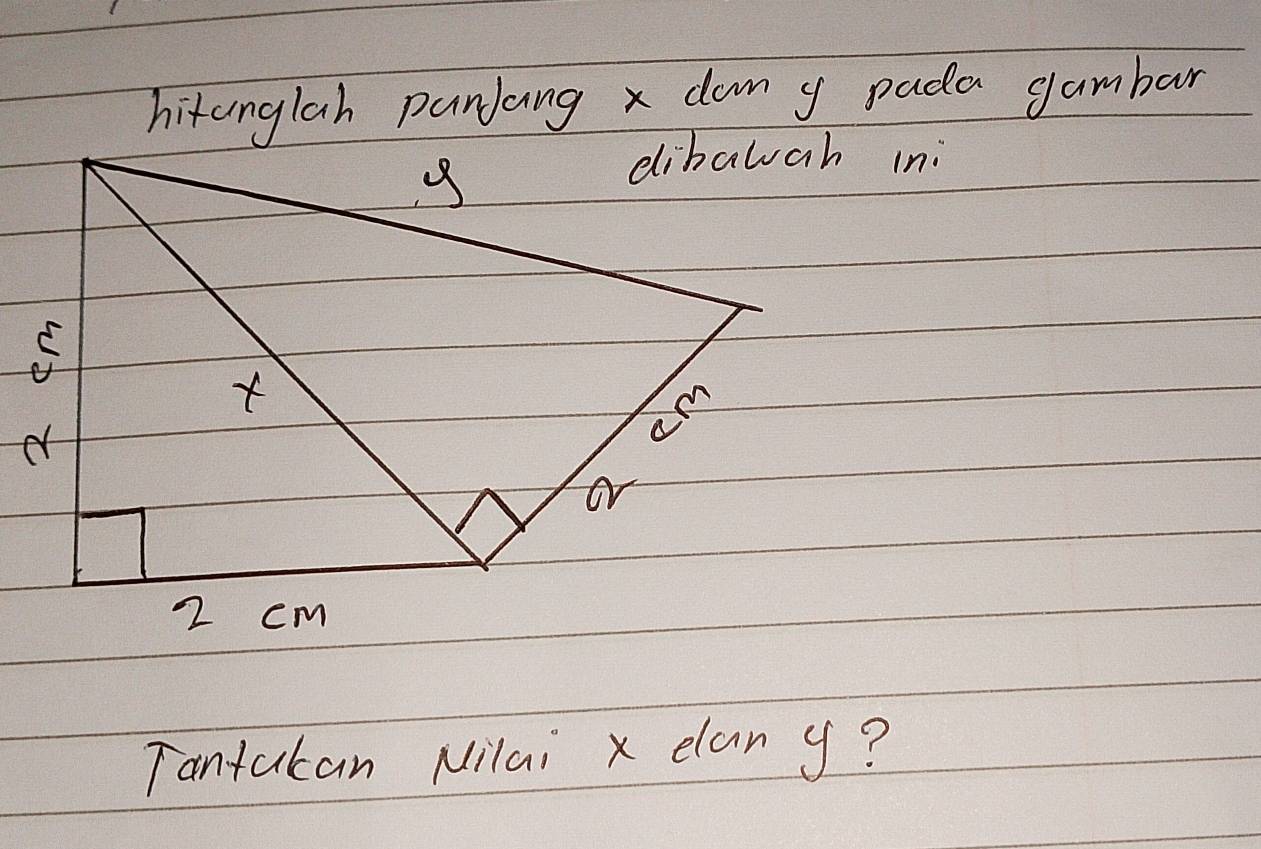 hitunglah panjang x dan y pada gambar
dibawah ini
y
2 cm
x
2 cm
2 cm
Tantukan Nilai x dan y?